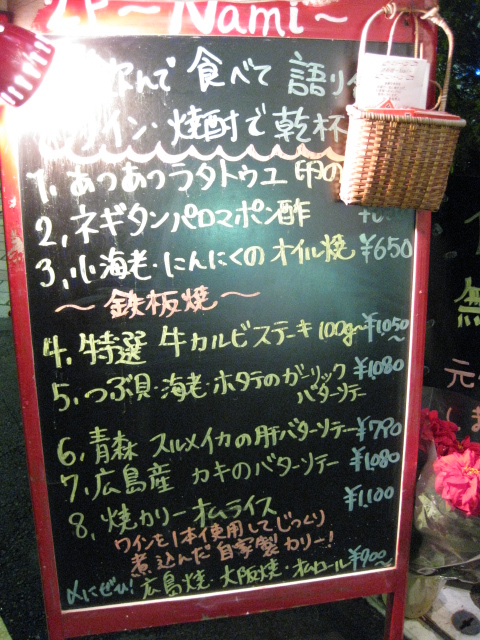 2F ~Nami~
飲んで 食べて 語り
ワイン・焼酎で乾杯
1. あつあつラタトゥユ 卵の
2. ネギタンパロマポン酢
3. 小海老・にんにくのオイル焼 ¥650
～鉄板焼～
4. 特選 牛カルビステーキ 100g~ ¥1,050~
5. つぶ貝・海老・ホタテのガーリック ¥1,080
バターソテー
6. 青森 スルメイカの肝バターソテー ¥790
7. 広島産 カキのバターソテー ¥1,080
8. 焼カリーオムライス ¥1,100
ワインを1本使用してじっくり
煮込んだ自家製カリー!
〆にぜひ! 広島焼・大阪焼・オムロール ¥900~
無
元